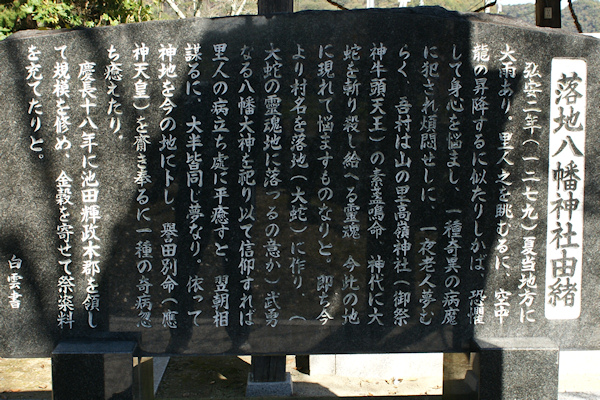 落地八幡神社由緒
弘安二年(一二七九)夏当地方に
大雨あり。里人之を眺むるに、空中
龍の昇降するに似たりしかば、恐懼
して身心を悩まし、一種奇異の病魔
に犯され煩悶せしに、一夜老人夢む
らく、吾村は山の里高嶺神社(御祭
神牛頭天王)の素盞鳴命、神代に大
蛇を斬り殺し給へる霊魂、今此の地
に現れて悩ますものなりと、即ち今
より村名を落地(大蛇)に作り、(
大蛇の霊魂地に落つるの意か)武勇
なる八幡大神を祀り以て信仰すれば
里人の病立ち処に平癒すと、翌朝相
謀るに、大半皆同じ夢なり。依って
神地を今の地に卜し、誉田別命(應
神天皇)を斎き奉るに一種の奇病忽
ち癒えたり。
慶長十八年に池田輝政本郡を領し
て規模を修め、金穀を寄せて祭粢料
を充てたりと。
白雲書